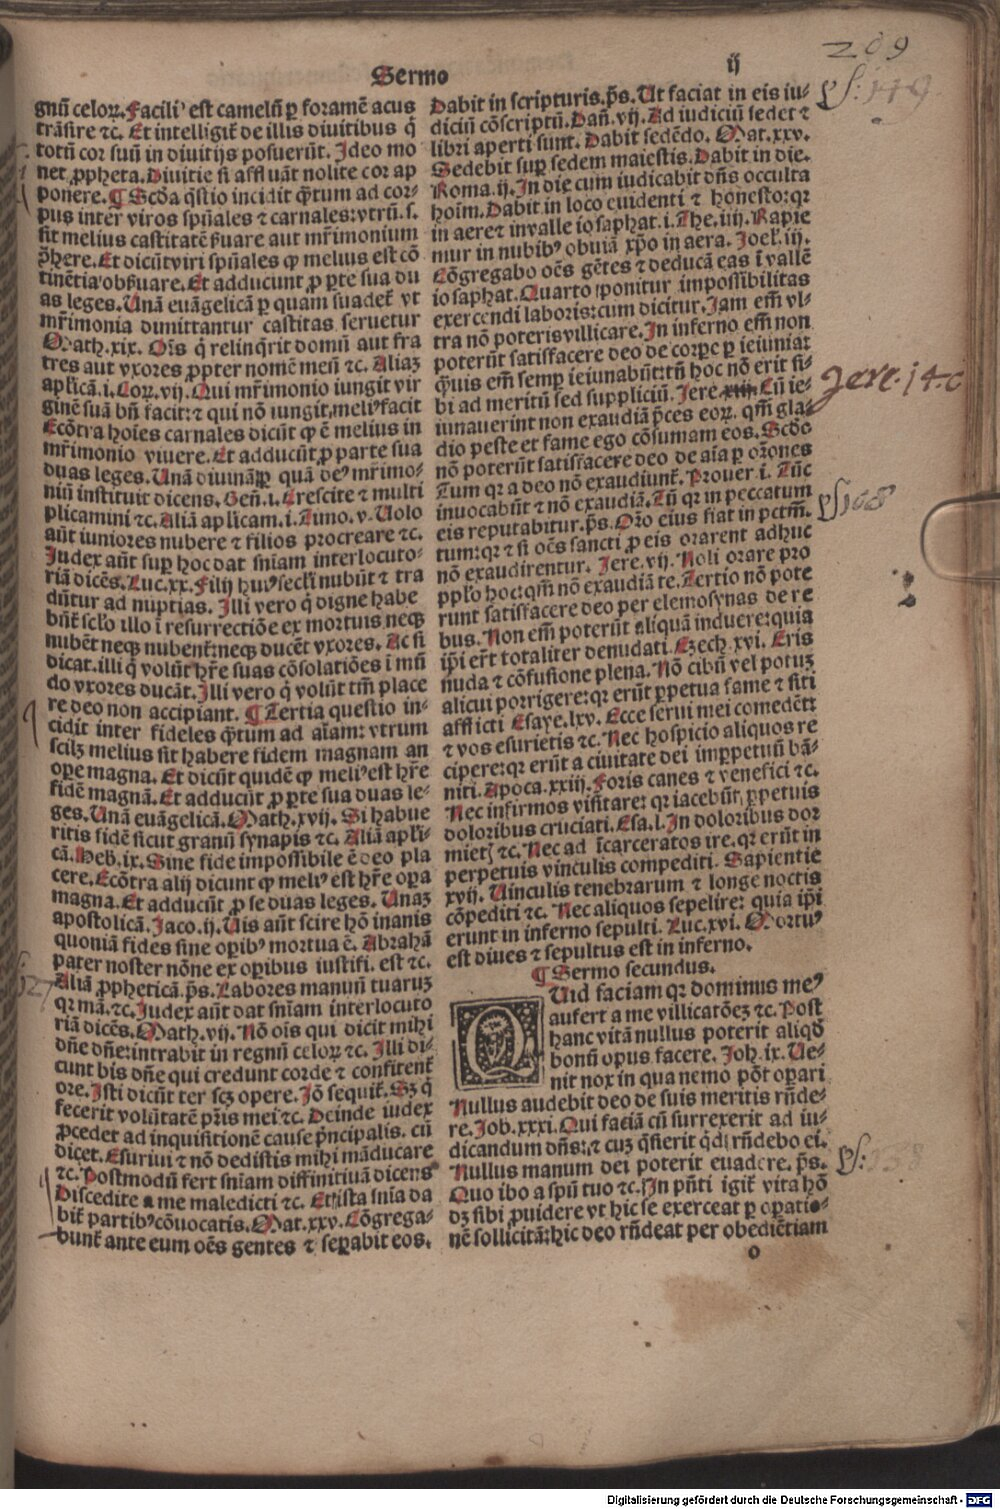 209
Sermo ij
gnū celoꝝ. Facili⁹ est camelū ꝑ foramē acus
trāsire ⁊c. Et intelligit̄ de illis diuitibus q̇
totū cor suū in diuitijs posuerūt. Ideo mo
net ꝓpheta. Diuitie si affluāt nolite cor ap
ponere. ¶ Scd̄a q̄stio incidit q̄tum ad cor-
pus inter viros spūales ⁊ carnales: vtrū. s.
sit melius castitatē ẜuare aut mr̄imonium
ꝯ̄here. Et dicūt viri spūales ꝙ melius est cō
tinētia⁹ obẜuare. Et adducunt ꝓ ꝑte sua du
as leges. Unā euāgelicā ꝑ quam suadet̄ vt
mr̄imonia dimittantur castitas seruetur
Math. xix. Oīs q̇ relinq̇rit domū aut fra
tres aut vxores ꝓpter nomē meū ⁊c. Aliaꝫ
apl̄icā. i. Coꝝ. vij. Qui mr̄imonio iungit vir
ginē suā bn̄ facit: ⁊ qui nō iungit, meli⁹ facit
Ecōtra hoīes carnales dicūt ꝙ ē melius in
mr̄imonio viuere. Et adducūt ꝓ parte sua
duas leges. Unā diuinā ꝑ quā de⁹ mr̄imo-
niū instituit dicens. Gen̄. i. Crescite ⁊ multi
plicamini ⁊c. Aliā apl̄icam. i. Timo. v. Uolo
aūt iuniores nubere ⁊ filios procreare ⁊c.
Iudex aūt suꝑ hoc dat sn̄iam interlocuto-
riā dicēs. Luc. xx. Filij hui⁹ secl̄i nubūt ⁊ tra
dūtur ad nuptias. Illi vero q̇ digne habe
būt̄ scl̄o illo ī resurrectiōe ex mortuis neqꝫ
nubēt neqꝫ nubent̄: neqꝫ ducēt vxores. Ac si
dicat. illi q̇ volūt hr̄e suas cōsolatiōes ī mū
do vxores ducāt. Illi vero q̇ volūt tm̄ place
re deo non accipiant. ¶ Tertia questio in-
cidit inter fideles q̄tum ad aīam: vtrum
scilꝫ melius sit habere fidem magnam an
oꝑe magna. Et dicūt quidē ꝙ meli⁹ est hr̄e
fidē magnā. Et adducūt ꝓ ꝑte sua duas le-
ges. Unā euāgelicā. Math. xvij. Si habue
ritis fidē sicut granū synapis ⁊c. Aliā apl̄i-
cā. Heb. ix. Sine fide impossibile ē deo pla
cere. Ecōtra alij dicunt ꝙ meli⁹ est hr̄e oꝑa
magna. Et adducūt ꝓ se duas leges. Unaꝫ
apostolicā. Iaco. ij. Uis aūt scire hō inanis
quoniā fides sine oꝑib⁹ mortua ē. Abrahā
pater noster nōne ex oꝑibus iustifi. est ⁊c.
Aliā ꝓpheticā. ps̄. Labores manuū tuaruꝫ
qꝛ mā. ⁊c. Iudex aūt dat sn̄iam interlocuto
riā dicēs. Math. vij. Nō oīs qui dicit mihi
dn̄e dn̄e: intrabit in regnū celoꝝ ⁊c. Illi di-
cunt bis dn̄e qui credunt corde ⁊ confitent̄
ore. Isti dicūt ter scꝫ opere. Iō sequit̄. Sꝫ q̇
fecerit volūtatē pr̄is mei ⁊c. Deinde iudex
ꝓcedet ad inquisitionē cause pn̄cipalis. cū
dicet. Esuriui ⁊ nō dedistis mihi māducare
⁊c. Postmodū fert sn̄iam diffinitiuā dicens
Discedite a me maledicti ⁊c. Et ista sn̄ia da
bit̄ partib⁹ cōuocatis. Mat. xxv. Cōgrega-
bunt̄ ante eum oēs gentes ⁊ seꝑabit eos.
Dabit in scripturis. ps̄. Ut faciat in eis iu-
diciū cōscriptū. Dan̄. vij. Ad iudiciū sedet ⁊
libri aperti sunt. Dabit sedēdo. Mat. xxv.
Sedebit suꝑ sedem maiestis. Dabit in die.
Roma. ij. In die cum iudicabit dn̄s occulta
hoīm. Dabit in loco euidenti ⁊ honesto: qꝛ
in aere ⁊ inualle iosaphat. i. The. iiij. Rapie
mur in nubib⁹ obuiā xp̄o in aera. Joel̄. iij.
Cōgregabo oēs gētes ⁊ deducā eas ī vallē
iosaphat. Quarto ponitur impossibilitas
exercendi laboris: cum dicitur. Iam em̄ vl-
tra nō poteris villicare. In inferno em̄ non
poterūt satisfacere deo de corpe ꝑ ieiunia:
q̇uis em̄ semꝑ ieiunabūt: tn̄ hoc nō erit si-
bi ad meritū sed suppliciū. Jere. xiiij. Cū ie-
iunauerint non exaudiā p̄ces eoꝝ. qm̄ gla-
dio peste et fame ego cōsumam eos. Scd̄o
nō poterūt satisfacere deo de aīa ꝑ or̄ones
Tum qꝛ a deo nō exaudiunt̄. Prouer. i. Tūc
inuocabūt ⁊ nō exaudiā. Tū qꝛ in peccatum
eis reputabitur. ps̄. Or̄o eius fiat in pctm̄.
tum: qꝛ ⁊ si oēs sancti ꝓ eis orarent adhuc
nō exaudirentur. Jere. vij. Noli orare pro
ppl̄o hoc: qm̄ nō exaudiā te. Tertio nō pote
runt satisfacere deo per elemosynas de re
bus. Non em̄ poterūt aliquā induere: quia
ip̄i er̄t totaliter denudati. Ezech. xvi. Eris
nuda ⁊ cōfusione plena. Nō cibū vel potuꝫ
alicui porrigere: qꝛ erūt ꝑpetua fame ⁊ siti
afflicti Esaye. lxv. Ecce serui mei comedēt
⁊ vos esurietis ⁊c. Nec hospicio aliquos re
cipere: qꝛ erūt a ciuitate dei imꝑpetuū bā-
niti. Apoca. xxiij. Foris canes ⁊ venefici ⁊c.
Nec infirmos visitare: qꝛ iacebūt ꝑpetuis
doloribus cruciati. Esa. l. In doloribus dor
mietꝭ ⁊c. Nec ad īcarceratos ire. qꝛ erūt in
perpetuis vinculis compediti. Sapientie
xvij. Uinculis tenebrarum ⁊ longe noctis
cōpediti ⁊c. Nec aliquos sepelire: quia ip̄i
erunt in inferno sepulti. Luc. xvi. Mortu⁹
est diues ⁊ sepultus est in inferno.
¶ Sermo secundus.
QUid faciam qꝛ dominus me⁹
aufert a me villicatōeꝫ ⁊c. Post
hanc vitā nullus poterit aliqd̄
bonū opus facere. Joh. ix. Ue-
nit nox in qua nemo pōt oꝑari
Nullus audebit deo de suis meritis rn̄de-
re. Job. xxxi. Qui faciā cū surrexerit ad iu-
dicandum dn̄s: ⁊ cuꝫ q̄sierit q̇d rn̄debo ei.
Nullus manum dei poterit euadere. ps̄.
Quo ibo a spū tuo ⁊c. In pn̄ti igit̄ vita hō
dꝫ sibi ꝓuidere vt hic se exerceat ꝑ oꝑatio-
nē sollicitā: hic deo rn̄deat per obediētiam
o
ps: 149.
Jere. 14. c
ps 108
ps: 138
Digitalisierung gefördert durch die Deutsche Forschungsgemeinschaft - DFG